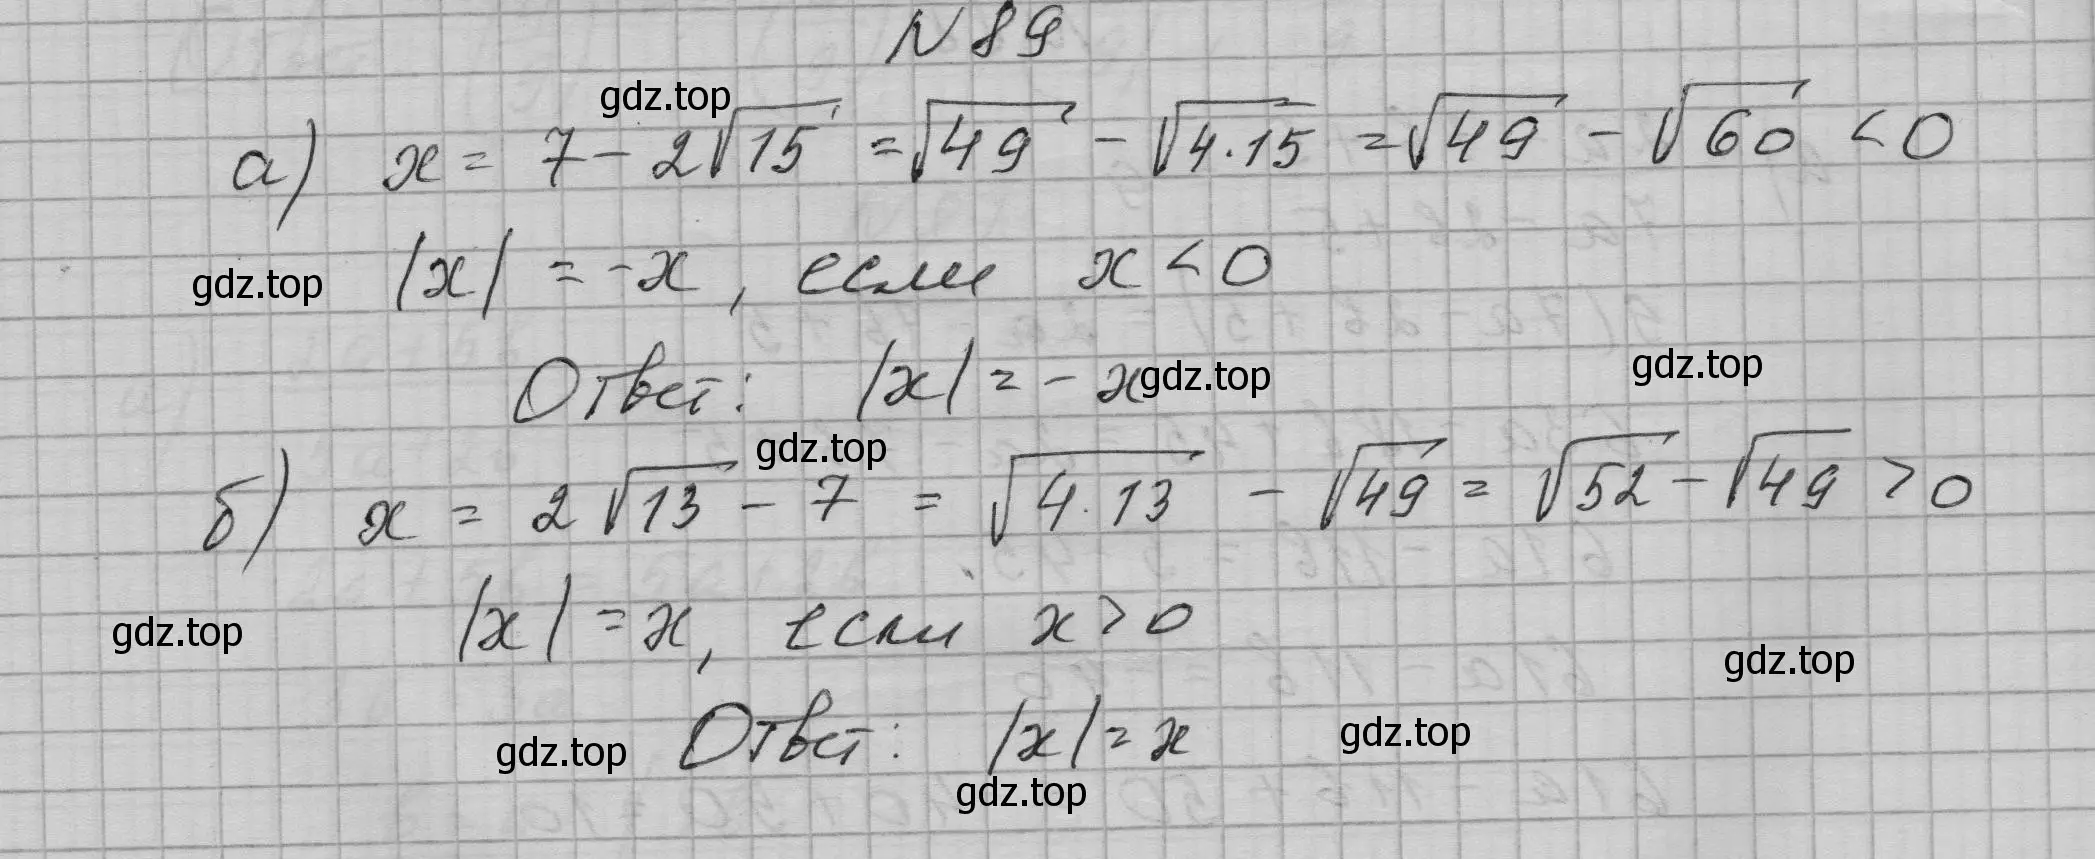 N 89
gdz.top
а) x = 7 - 2√15 = √49 - √4·15 = √49 - √60 < 0
gdz.top
|x| = -x, если x < 0
Ответ: |x| = - x
gdz.top
gdz.top
gdz.top
б) x = 2√13 - 7 = √4·13 - √49 = √52 - √49 > 0
gdz.top
|x| = x, если x > 0
gdz.top
gdz.top
Ответ: |x| = x
gdz.top
gdz.top